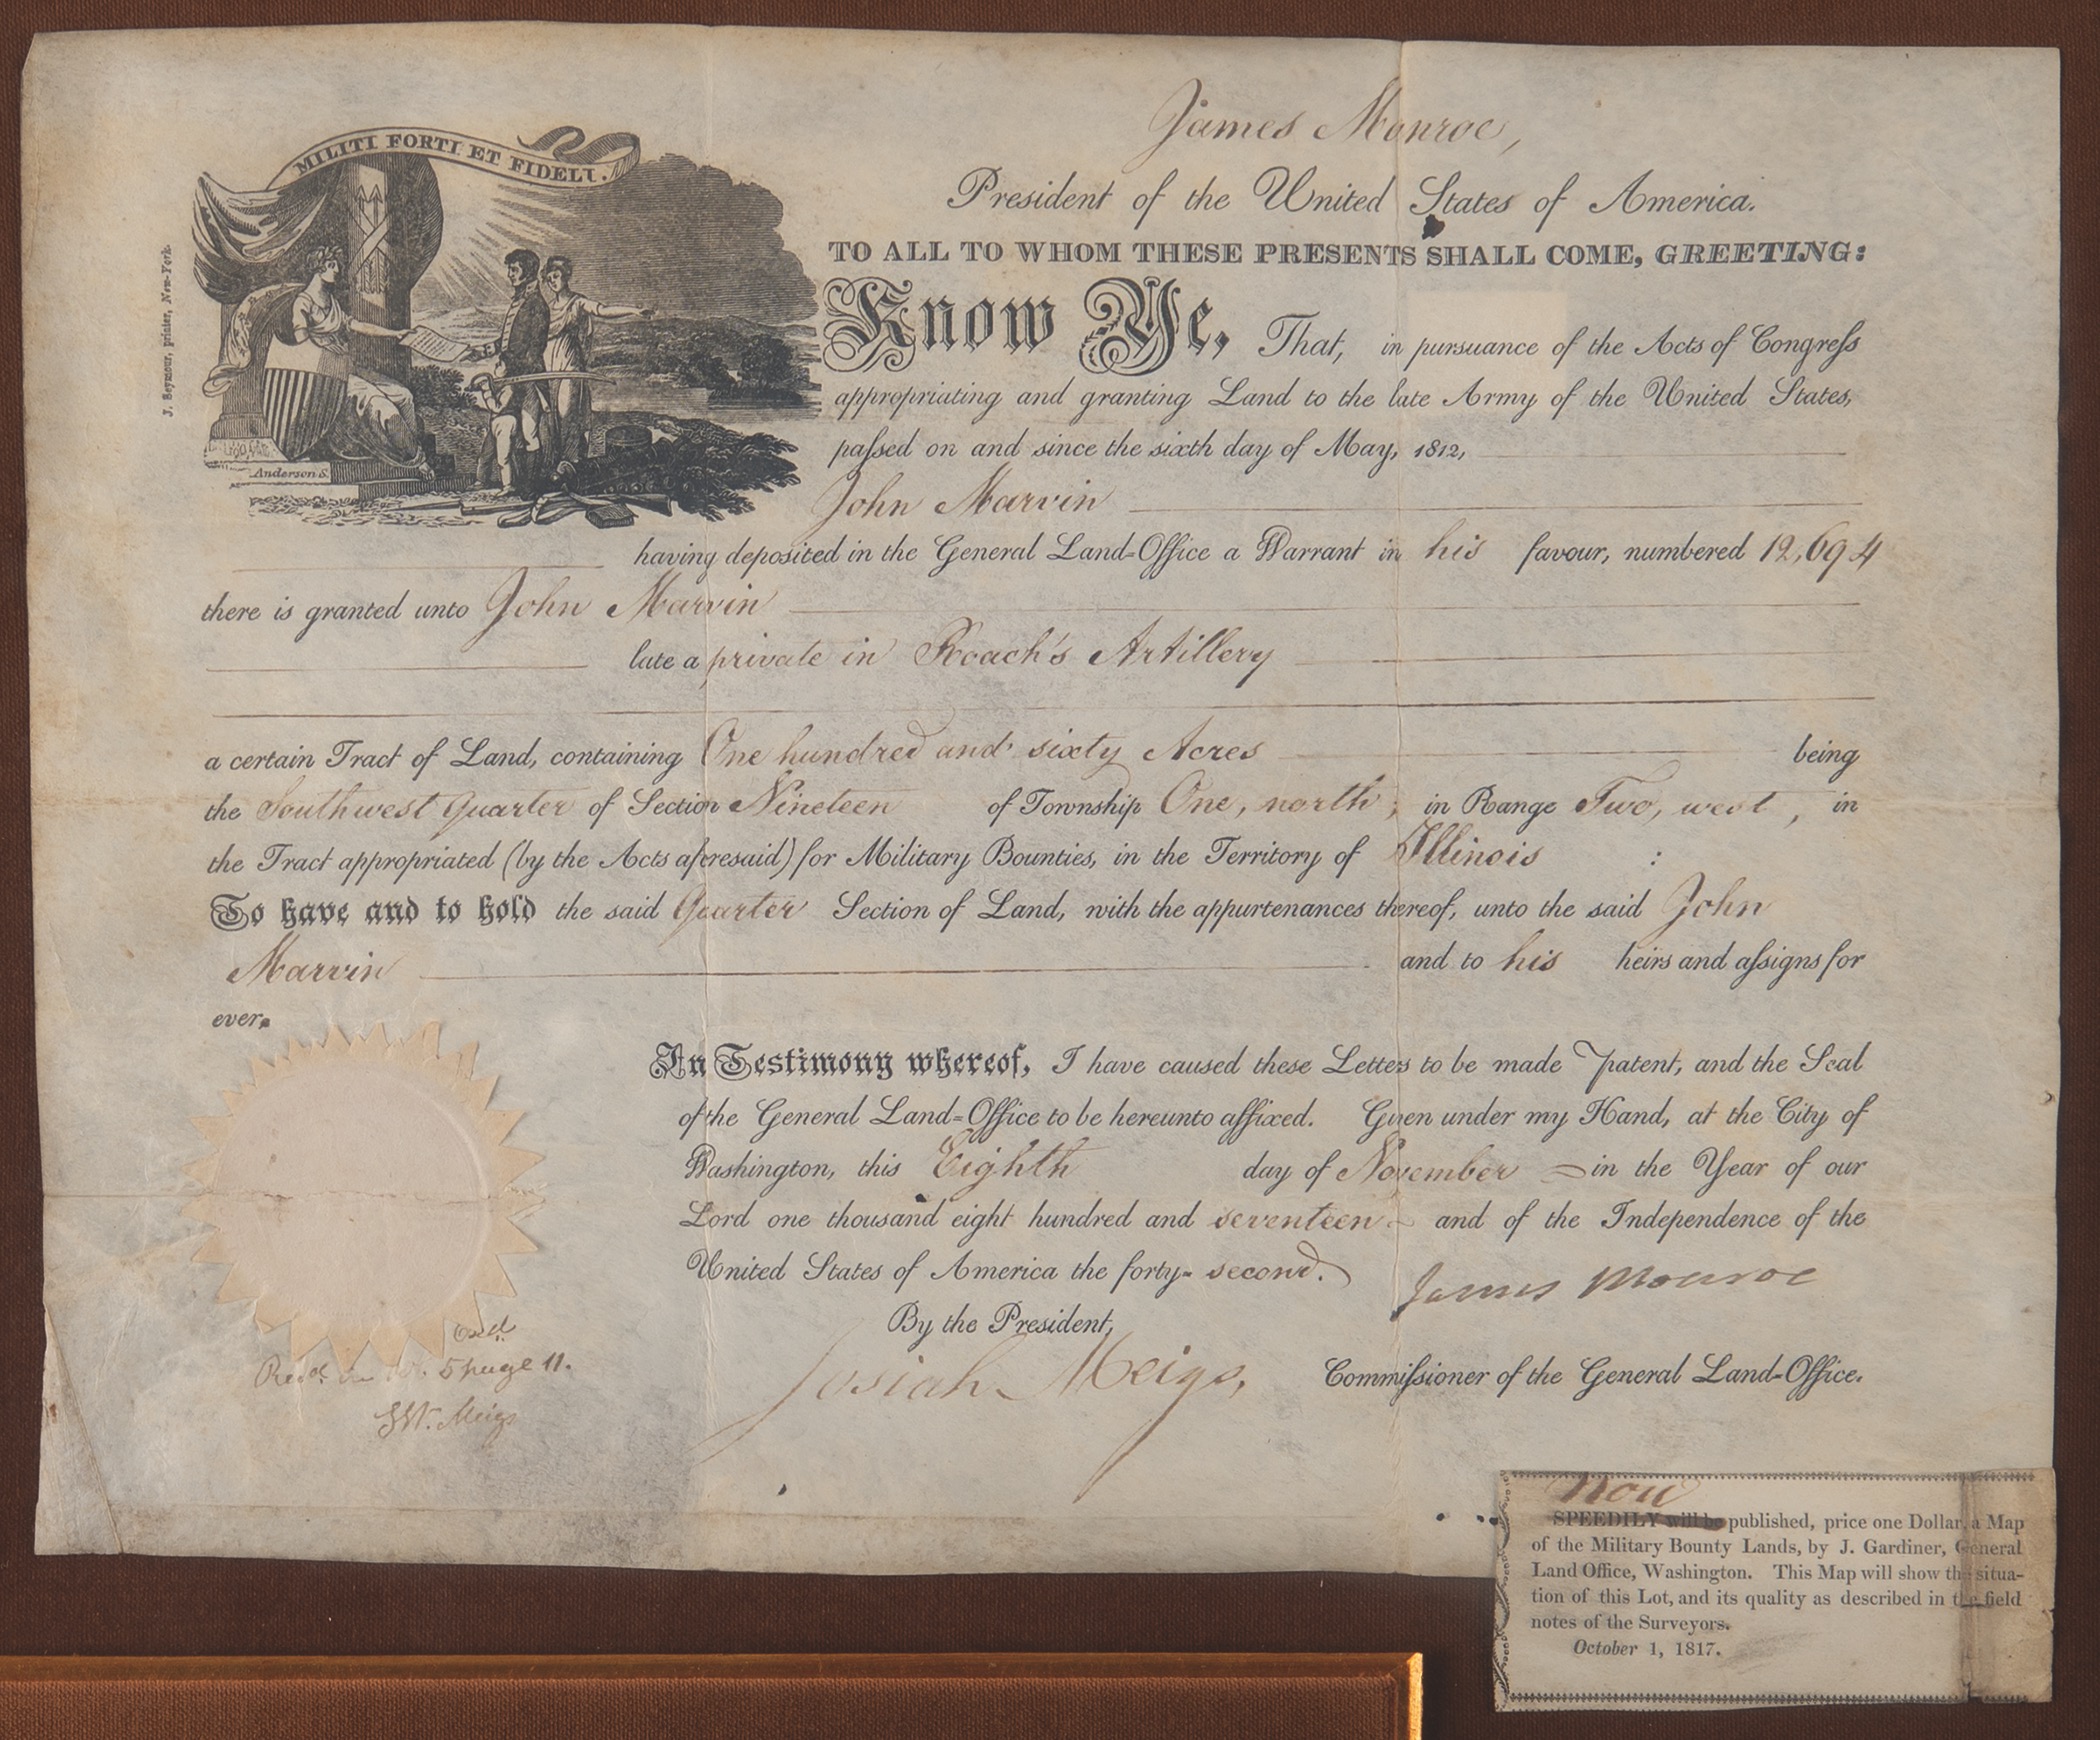 James Monroe,
President of the United States of America.
TO ALL TO WHOM THESE PRESENTS SHALL COME, GREETING:
MILITI FORTI ET FIDELI.
J. Seymour, printer, New-York.
Anderson S.
Know Ye, That, in pursuance of the Acts of Congreſs
appropriating and granting Land to the late Army of the United States,
paſsed on and since the sixth day of May, 1812,
John Marvin
having deposited in the General Land-Office a Warrant in his favour, numbered 12,694
there is granted unto John Marvin
late a private in Roach's Artillery
a certain Tract of Land, containing One hundred and sixty Acres being
the Southwest Quarter of Section Nineteen of Township One, north, in Range Two, west, in
the Tract appropriated (by the Acts aforesaid) for Military Bounties, in the Territory of Illinois :
To have and to hold the said Quarter Section of Land, with the appurtenances thereof, unto the said John
Marvin and to his heirs and aſsigns for
ever.
In Testimony whereof, I have caused these Letters to be made Patent, and the Seal
of the General Land-Office to be hereunto affixed. Given under my Hand, at the City of
Washington, this Eighth day of November in the Year of our
Lord one thousand eight hundred and seventeen and of the Independence of the
United States of America the forty-second.
James Monroe
By the President,
Josiah Meigs, Commiſsioner of the General Land-Office.
5 page 11.
Meigs
Now
SPEEDILY will be published, price one Dollar, a Map
of the Military Bounty Lands, by J. Gardiner, General
Land Office, Washington. This Map will show the situa-
tion of this Lot, and its quality as described in the field
notes of the Surveyors.
October 1, 1817.